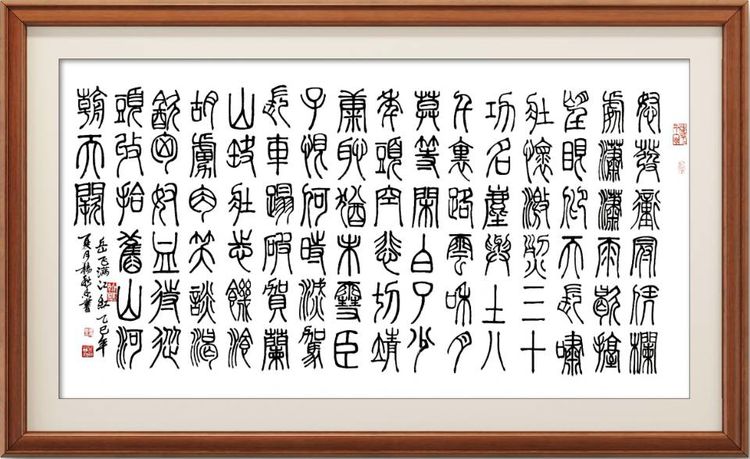 怒髮衝冠凭欄
處瀟瀟雨歇擡
望眼仰天長嘯
壯懷激烈三十
功名塵與土八
千裏路雲和月
莫等閑白了少
年頭空悲切靖
康恥猶未雪臣
子恨何時滅駕
長車踏破賀蘭
山缺壯志饑湌
胡虜肉笑談渴
飲匈奴血待從
頭收拾舊山河
朝天闕
岳飞满江紅乙巳年
夏月楊書